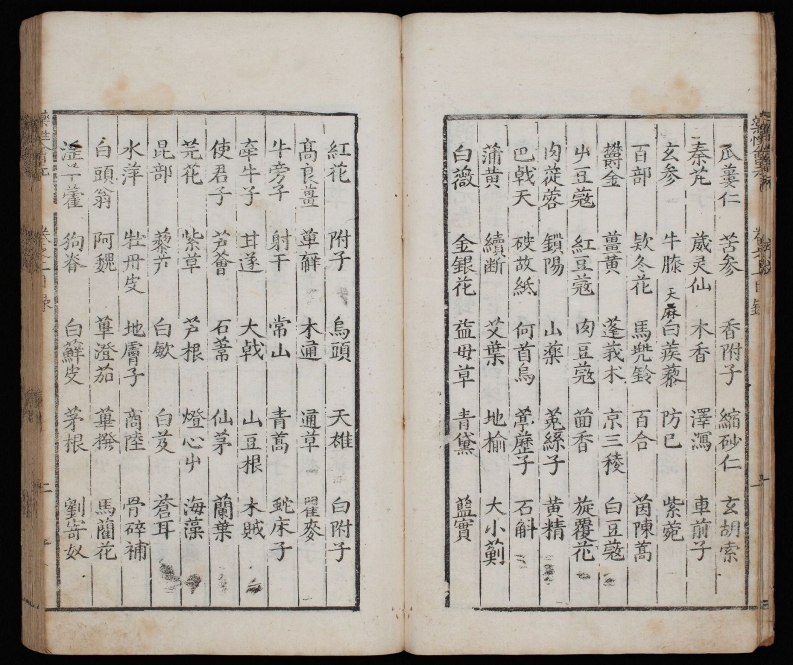 瓜蔞仁 苦参 香附子 縮砂仁 玄胡索
秦艽 葳灵仙 木香 澤瀉 車前子
玄参 牛膝 天麻 白蒺藜 防已 紫菀
百部 欵冬花 馬兠鈴 百合 茵陳蒿
欝金 薑黄 蓬莪术 京三稜 白豆蔻
屮豆蔻 紅豆蔻 肉豆蔻 茴香 旋覆花
肉蓯蓉 鎖陽 山藥 菟絲子 黄精
巴戟天 破故紙 何首烏 葶藶子 石斛
蒲黄 續断 艾葉 地榆 大小薊
白薇 金銀花 益母草 青黛 藍實
紅花 附子 烏頭 天雄 白附子
高良薑 萆薢 木通 通草 瞿麥
牛旁子 射干 常山 青蒿 虵床子
牽牛子 甘遂 大戟 山豆根 木賊
使君子 芦薈 石葦 仙茅 蘭葉
芫花 紫草 芦根 燈心屮 海藻
昆部 藜芦 白歛 白芨 蒼耳
水萍 牡丹皮 地膚子 商陸 骨碎補
白頭翁 阿魏 蓽澄茄 蓽撥 馬藺花
滛羊藿 狗脊 白蘚皮 茅根 劉寄奴